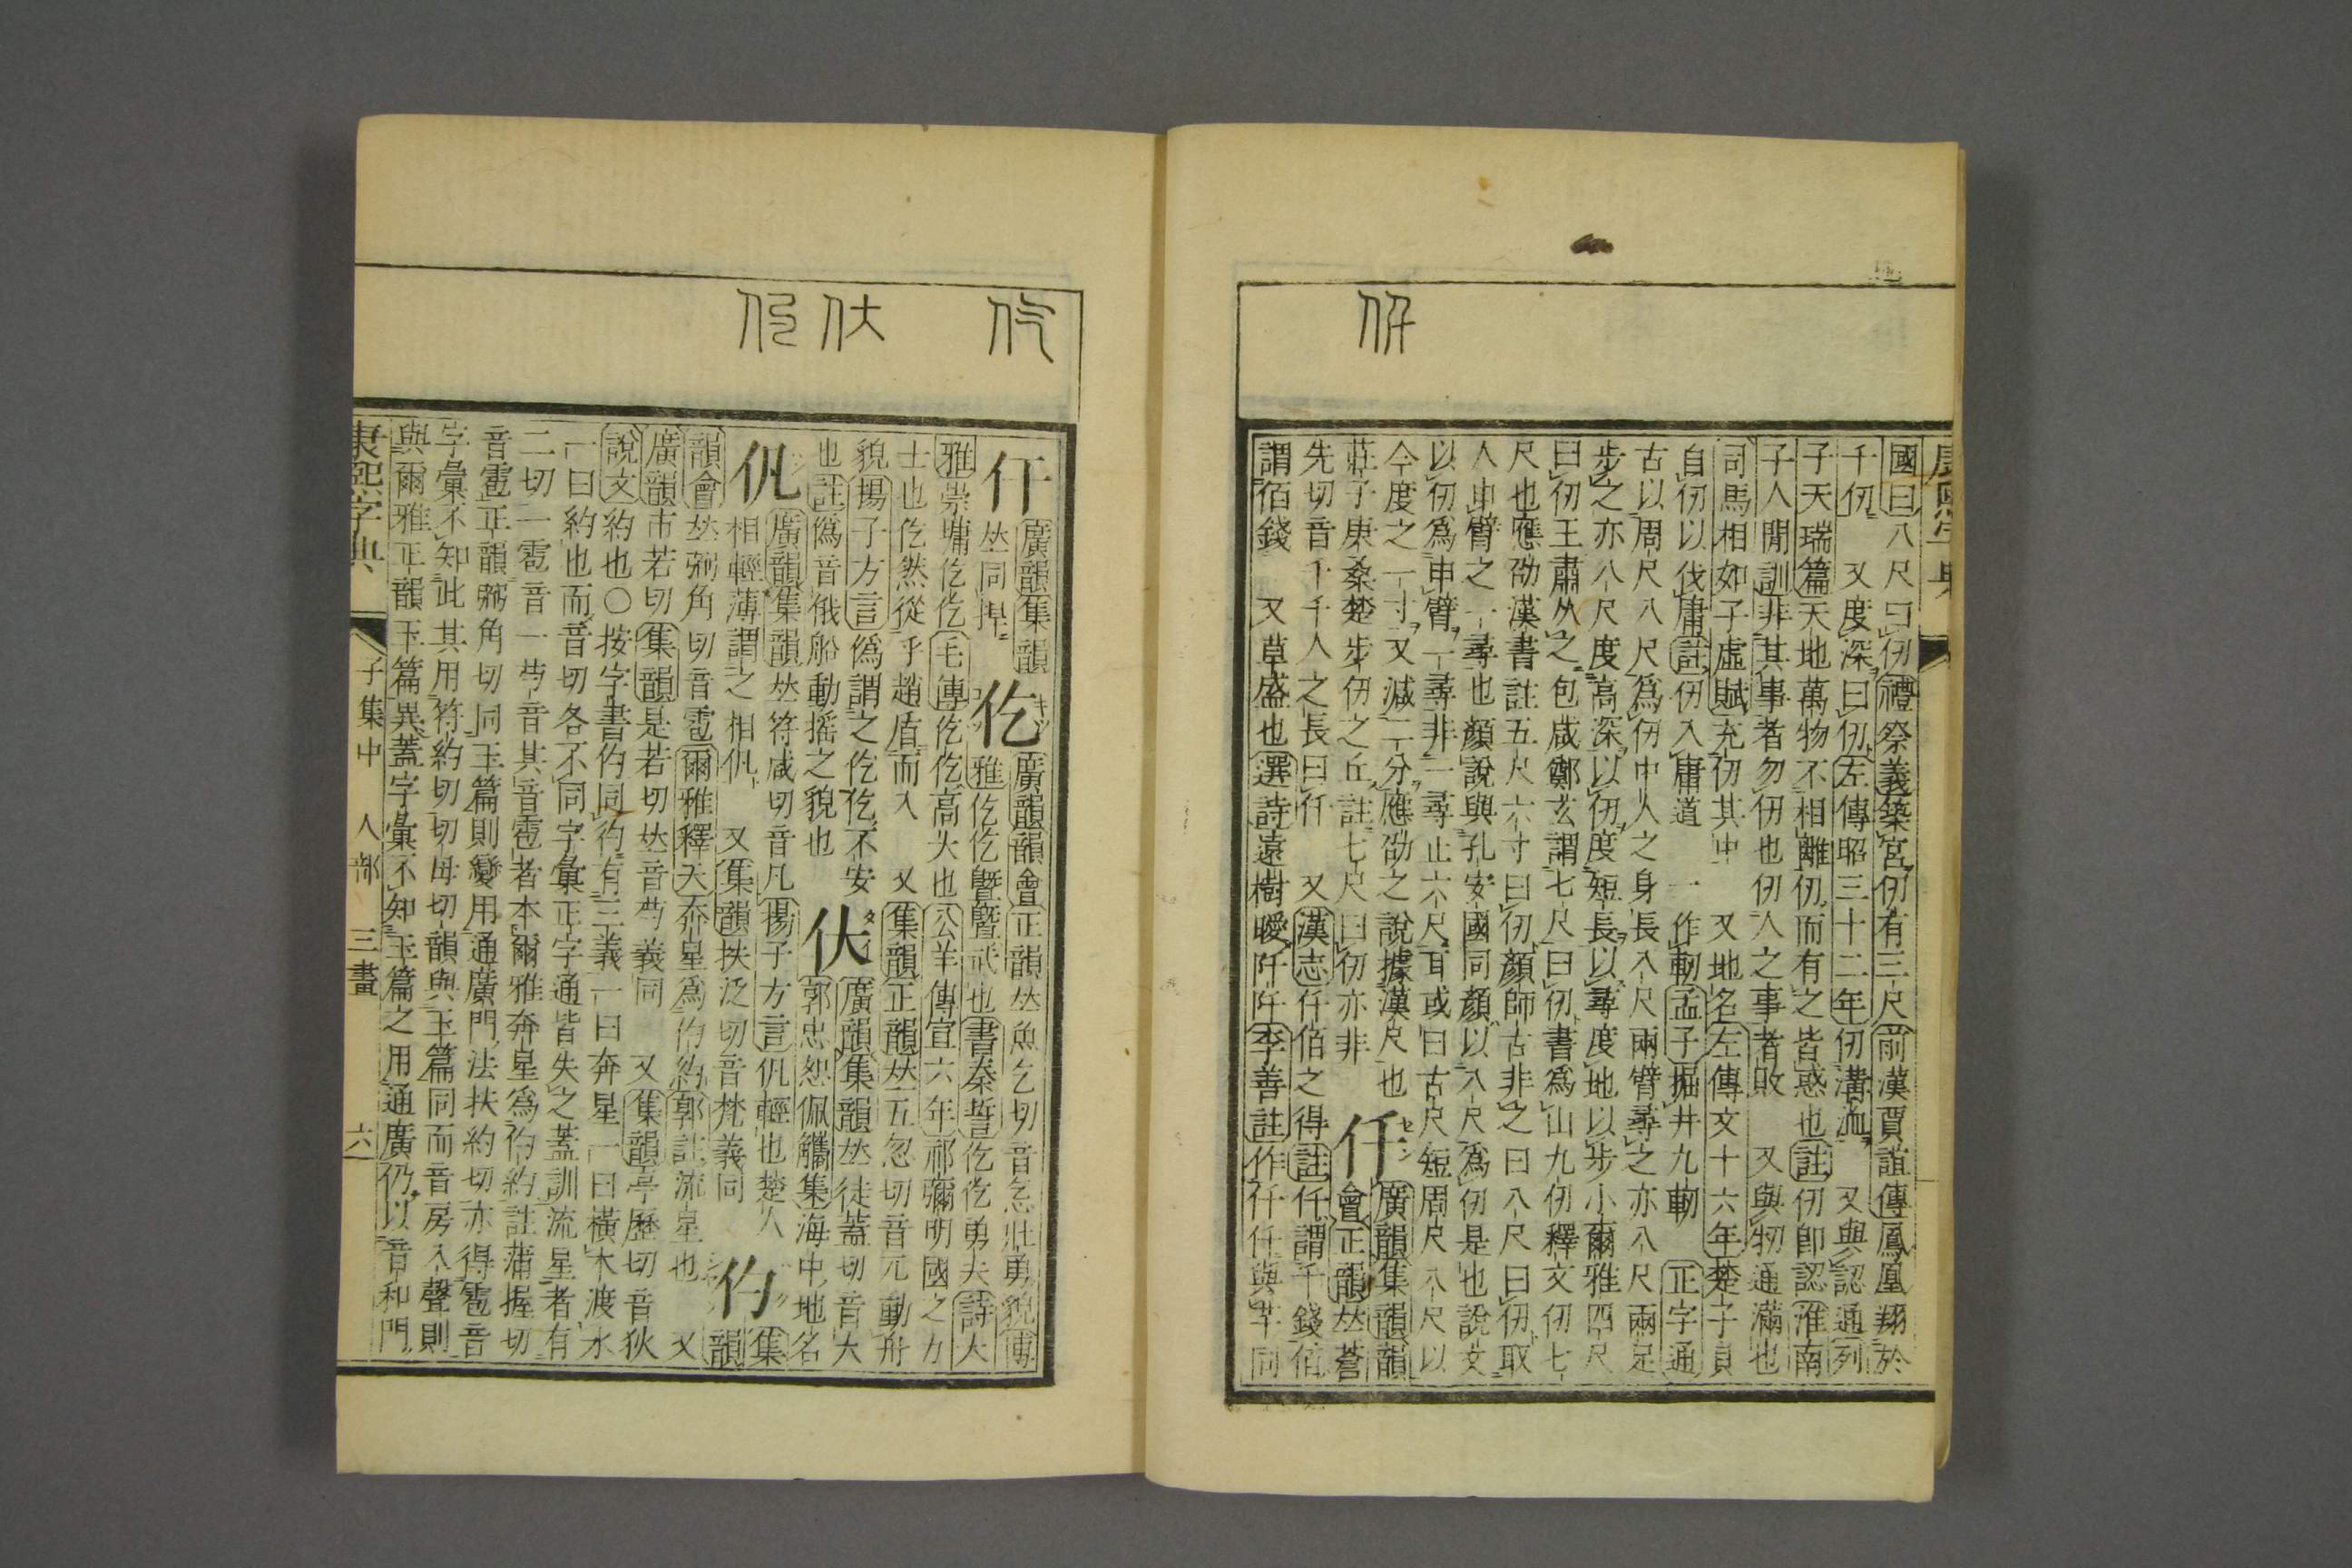 康熙字典
國曰八尺曰仞禮祭義築宮仞有三尺前漢賈誼傳鳳凰翔於
千仞 又度深曰仞左傳昭三十二年仞溝洫 又與認通列
子天瑞篇天地萬物不相離仞而有之皆惑也註仞卽認淮南
子人閒訓非其事者勿仞也仞人之事者敗 又與牣通滿也
司馬相如子虛賦充仞其中 又地名左傳文十六年楚子貝
自仞以伐庸註仞入庸道 一作軔孟子掘井九軔 正字通
古以周尺八尺爲仞中人之身長八尺兩臂尋之亦八尺兩足
步之亦八尺度高深以仞度短長以尋度地以步小爾雅四尺
曰仞王肅从之包咸鄭玄謂七尺曰仞書爲山九仞釋文仞七
尺也應劭漢書註五尺六寸曰仞顏師古非之曰八尺曰仞取
人申臂之一尋也顏說與孔安國同顏以八尺爲仞是也說文
以仞爲申臂一尋非一尋止六尺耳或曰古尺短周尺八尺以
今度之一寸又減二分應劭之說據漢尺也
莊子庚桑楚步仞之丘註七尺曰仞亦非
仟
セン
廣韻集韻韻
會正韻𠀤蒼
先切音千千人之長曰仟 又漢志仟佰之得註仟謂千錢佰
謂佰錢 又草盛也選詩遠樹曖阡阡李善註作仟仟與芊同
仠
廣韻集韻
𠀤同捍
仡
廣韻韻會正韻𠀤魚乞切音屹壯勇貌博
雅仡仡曁曁武也書秦誓仡仡勇夫詩大
雅崇墉仡仡毛傳仡仡高大也公羊傳宣六年祁彌明國之力
士也仡然從乎趙盾而入 又集韻正韻𠀤五忽切音兀動舟
貌揚子方言僞謂之仡仡不安
也註僞音俄船動搖之貌也
㐲
タイ
廣韻集韻𠀤徒蓋切音大
郭忠恕佩觿集海中地名
㐳
廣韻集韻𠀤符咸切音凡揚子方言㐳輕也楚人
相輕薄謂之相㐳 又集韻扶泛切音梵義同
仢
集
韻
韻會𠀤弼角切音雹爾雅釋天奔星爲仢約郭註流星也 又
廣韻市若切集韻是若切𠀤音芍義同 又集韻亭歷切音狄
說文約也〇按字書仢同彴有三義一曰奔星一曰橫木渡水
一曰約也而音切各不同字彙正字通皆失之蓋訓流星者有
二切一雹音一芍音其音雹者本爾雅奔星爲仢約註蒲握切
音雹正韻弼角切同玉篇則變用通廣門法扶約切亦得雹音
字彙不知此其用符約切切母切韻與玉篇同而音房入聲則
與爾雅正韻玉篇異蓋字彙不知玉篇之用通廣仍以音和門
康熙字典 子集中 人部 三畫 六